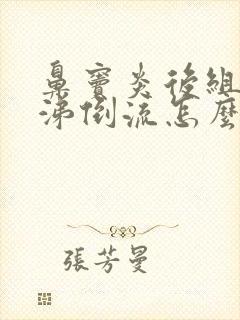 鼻竇炎後組
涕倒流怎麼
張芳曼